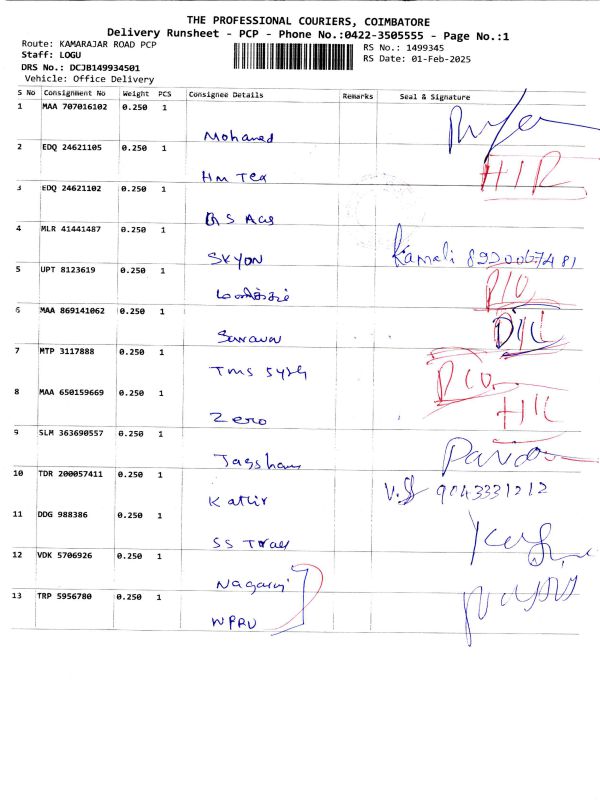 THE PROFESSIONAL COURIERS, COIMBATORE
Delivery Runsheet - PCP - Phone No.:0422-3505555 - Page No.:1
Route: KAMARAJAR ROAD PCP
RS No.: 1499345
Staff: LOGU
RS Date: 01-Feb-2025
DRS No.: DCJB149934501
Vehicle: Office Delivery
S No Consignment No Weight PCS Consignee Details Remarks Seal & Signature
1 MAA 707016102 0.250 1
Mohamed
2 EDQ 24621105 0.250 1
Hm Tex
3 EDQ 24621102 0.250 1
4 MLR 41441487 0.250 1
SKYON Kamali
5 UPT 8123619 0.250 1
6 MAA 869141062 0.250 1
7 MTP 3117888 0.250 1
Tms
8 MAA 650159669 0.250 1
Zero
9 SLM 363690557 0.250 1
10 TDR 200057411 0.250 1
Kathir 9043331212
11 DDG 988386 0.250 1
12 VDK 5706926 0.250 1
Nagaraj
13 TRP 5956780 0.250 1